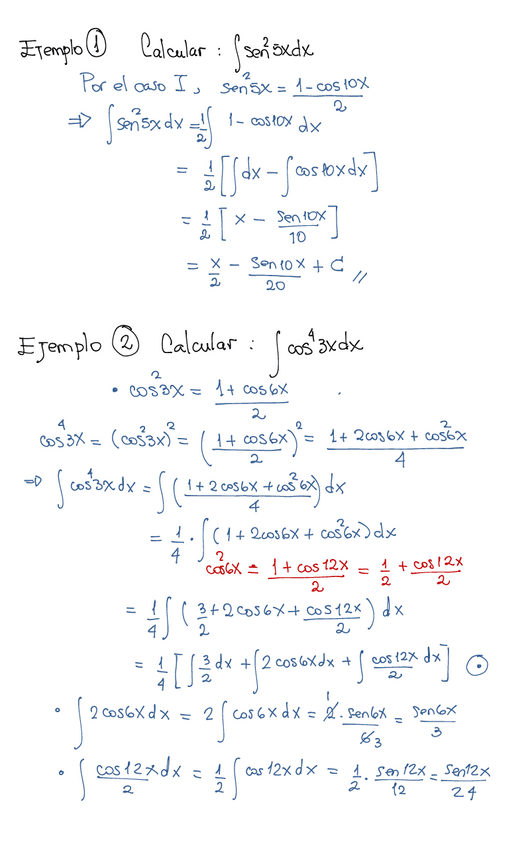 Ejemplo ① Calcular : ∫ sen²5x dx
Por el caso I, sen²5x = (1 - cos10x)/2
⇒ ∫ sen²5x dx = 1/2 ∫ 1 - cos10x dx
= 1/2 [∫ dx - ∫ cos10x dx]
= 1/2 [x - sen10x/10]
= x/2 - sen10x/20 + C //
Ejemplo ② Calcular : ∫ cos⁴3x dx
• cos²3x = (1 + cos6x)/2
cos⁴3x = (cos²3x)² = ((1 + cos6x)/2)² = (1 + 2cos6x + cos²6x)/4
⇒ ∫ cos⁴3x dx = ∫ ((1 + 2cos6x + cos²6x)/4) dx
= 1/4 · ∫ (1 + 2cos6x + cos²6x) dx
cos²6x = (1 + cos12x)/2 = 1/2 + cos12x/2
= 1/4 ∫ (3/2 + 2cos6x + cos12x/2) dx
= 1/4 [∫ 3/2 dx + ∫ 2cos6x dx + ∫ cos12x/2 dx] ⊙
• ∫ 2cos6x dx = 2 ∫ cos6x dx = 2̸ ¹ · sen6x/6̸ ₃ = sen6x/3
• ∫ cos12x/2 dx = 1/2 ∫ cos12x dx = 1/2 · sen12x/12 = sen12x/24